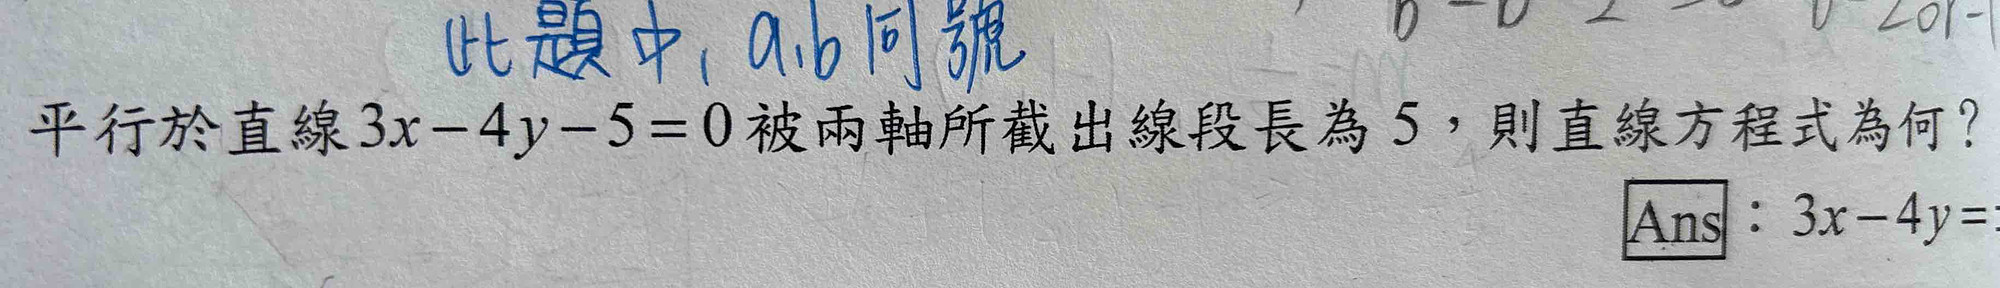 此題中,a,b同號
平行於直線3x-4y-5=0被兩軸所截出線段長為5,則直線方程式為何?
Ans:3x-4y=